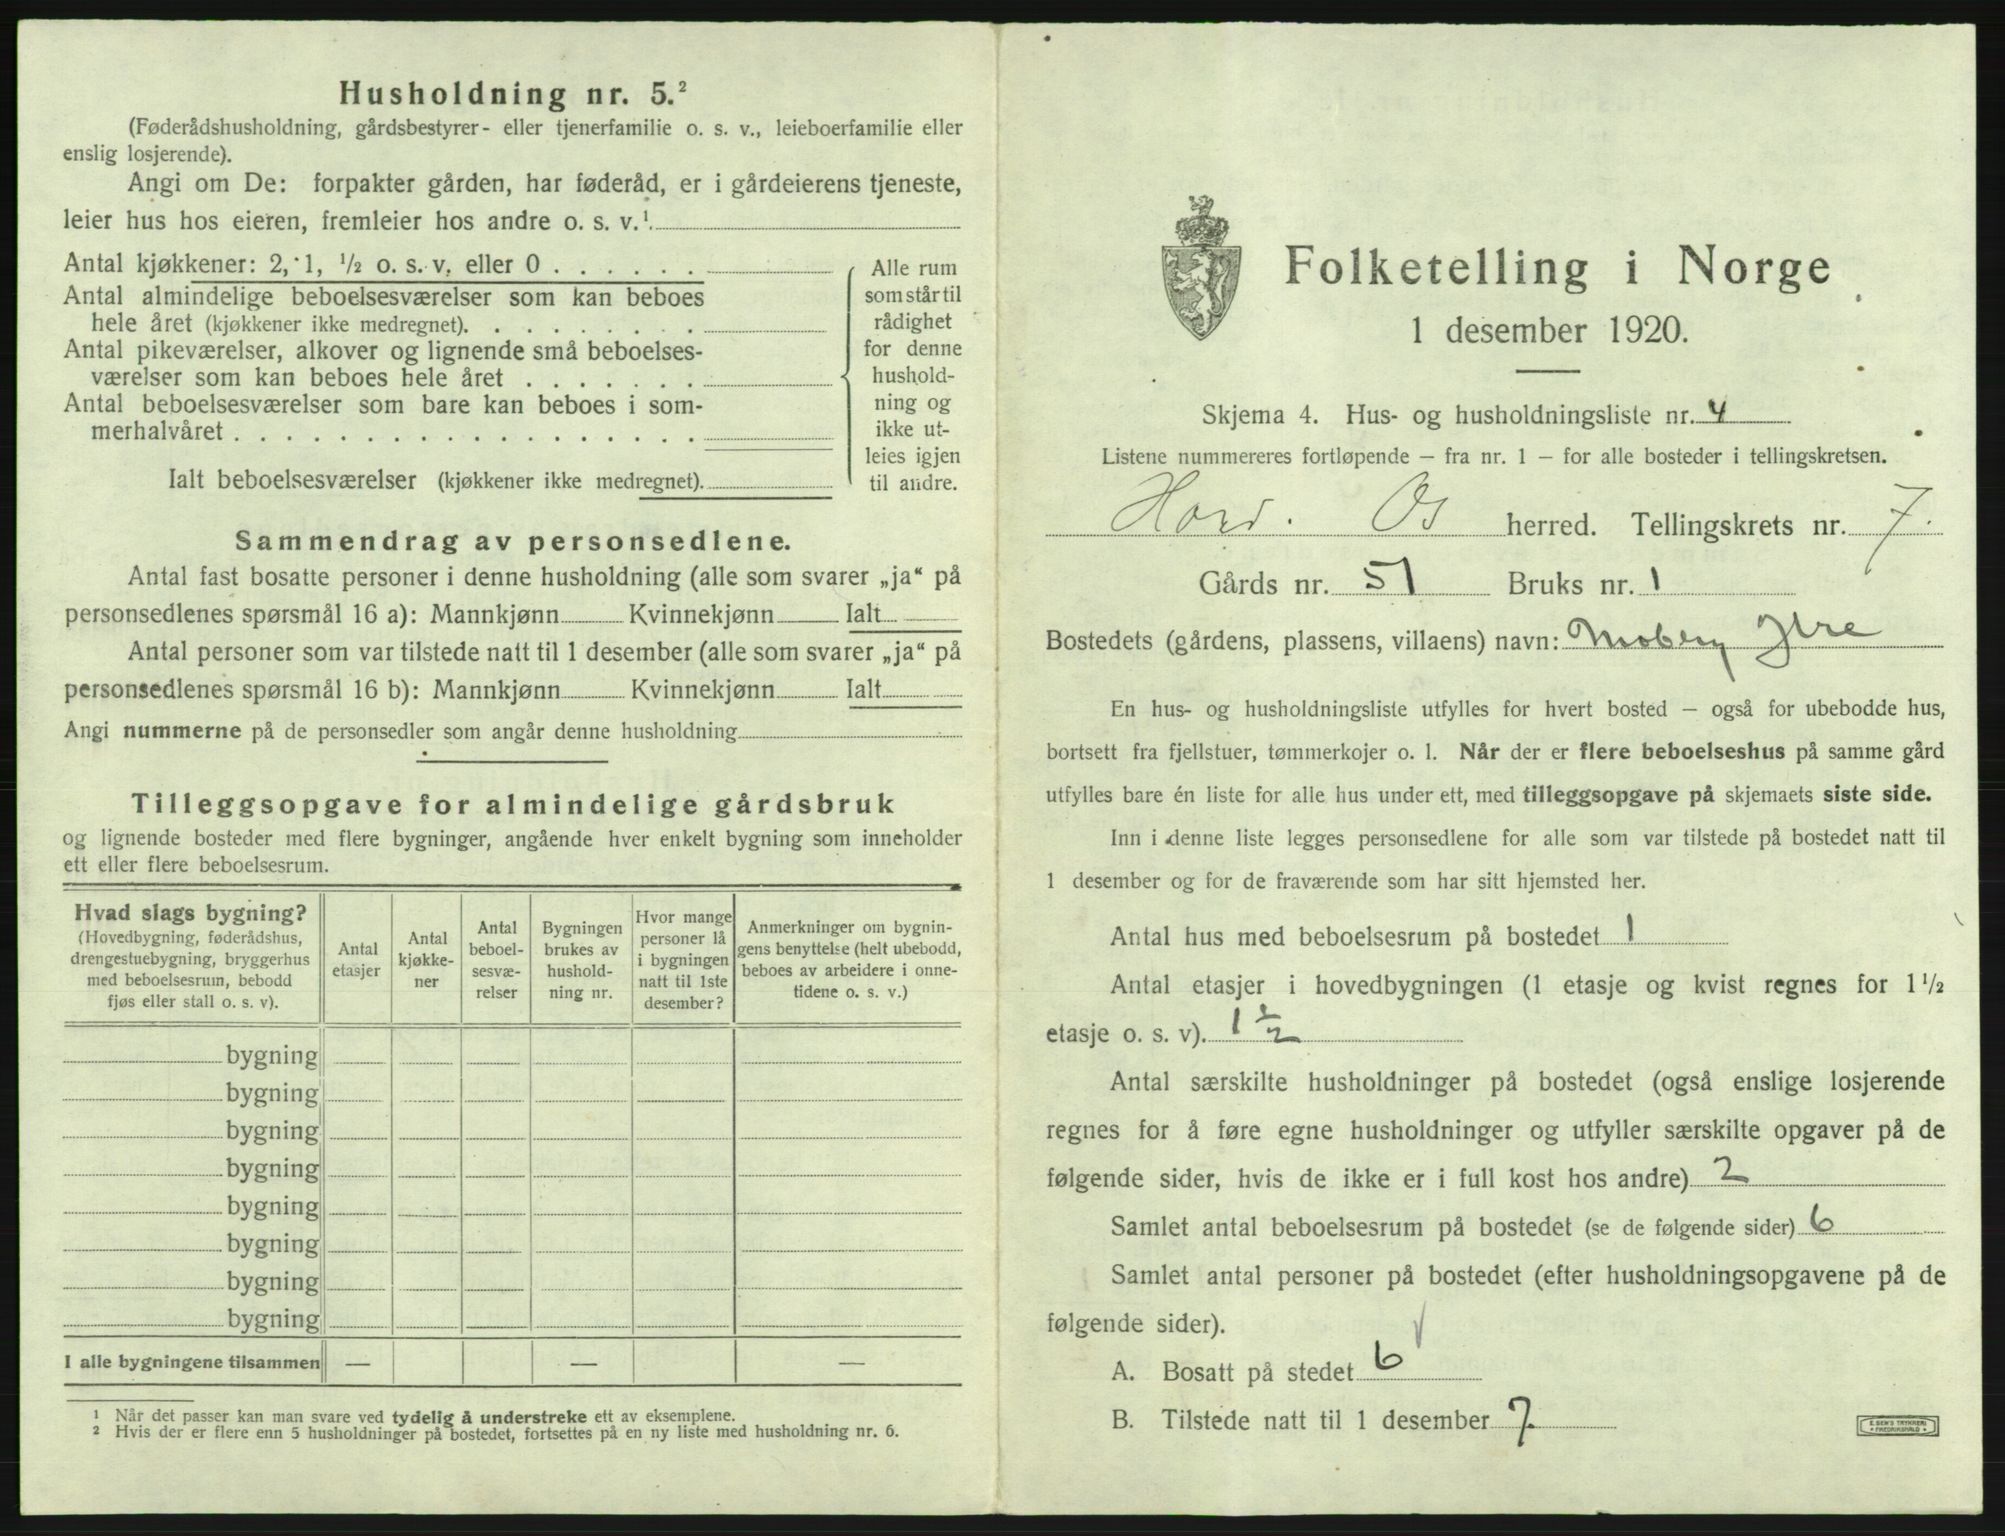 Husholdning nr. 5.²
(Føderådshusholdning, gårdsbestyrer- eller tjenerfamilie o. s. v., leieboerfamilie eller
enslig losjerende).
Angi om De: forpakter gården, har føderåd, er i gårdeierens tjeneste,
leier hus hos eieren, fremleier hos andre o. s. v.¹
Antal kjøkkener: 2, 1, ½ o. s. v. eller 0 . . . . . .
Antal almindelige beboelsesværelser som kan beboes
hele året (kjøkkener ikke medregnet). . . . . . . . .
Antal pikeværelser, alkover og lignende små beboelses-
værelser som kan beboes hele året . . . . . . .
Antal beboelsesværelser som bare kan beboes i som-
merhalvåret . . . . . . . . . . . . . . . . . .
Ialt beboelsesværelser (kjøkkener ikke medregnet).
Alle rum
som står til
rådighet
for denne
hushold-
ning og
ikke ut-
leies igjen
til andre.
Sammendrag av personsedlene.
Antal fast bosatte personer i denne husholdning (alle som svarer „ja“ på
personsedlenes spørsmål 16 a): Mannkjønn Kvinnekjønn Ialt
Antal personer som var tilstede natt til 1 desember (alle som svarer „ja“ på
personsedlenes spørsmål 16 b): Mannkjønn Kvinnekjønn Ialt
Angi nummerne på de personsedler som angår denne husholdning
Tilleggsopgave for almindelige gårdsbruk
og lignende bosteder med flere bygninger, angående hver enkelt bygning som inneholder
ett eller flere beboelsesrum.
Hvad slags bygning?
(Hovedbygning, føderådshus,
drengestuebygning, bryggerhus
med beboelsesrum, bebodd
fjøs eller stall o. s. v).
Antal
etasjer
Antal
kjøkke-
ner
Antal
beboel-
sesvæ-
relser
Bygningen
brukes av
hushold-
ning nr.
Hvor mange
personer lå
i bygningen
natt til 1ste
desember?
Anmerkninger om bygnin-
gens benyttelse (helt ubebodd,
beboes av arbeidere i onne-
tidene o. s. v.)
bygning
bygning
bygning
bygning
bygning
bygning
bygning
bygning
I alle bygningene tilsammen — — —
¹ Når det passer kan man svare ved tydelig å understreke ett av eksemplene.
² Hvis der er flere enn 5 husholdninger på bostedet, fortsettes på en ny liste med husholdning nr. 6.
Folketelling i Norge
1 desember 1920.
Skjema 4. Hus- og husholdningsliste nr. 4
Listene nummereres fortløpende — fra nr. 1 — for alle bosteder i tellingskretsen.
Hord. Os herred. Tellingskrets nr. 7.
Gårds nr. 51 Bruks nr. 1
Bostedets (gårdens, plassens, villaens) navn: Moberg Ytre
En hus- og husholdningsliste utfylles for hvert bosted — også for ubebodde hus,
bortsett fra fjellstuer, tømmerkojer o. l. Når der er flere beboelseshus på samme gård
utfylles bare én liste for alle hus under ett, med tilleggsopgave på skjemaets siste side.
Inn i denne liste legges personsedlene for alle som var tilstede på bostedet natt til
1 desember og for de fraværende som har sitt hjemsted her.
Antal hus med beboelsesrum på bostedet 1
Antal etasjer i hovedbygningen (1 etasje og kvist regnes for 1½
etasje o. s. v). 1½
Antal særskilte husholdninger på bostedet (også enslige losjerende
regnes for å føre egne husholdninger og utfyller særskilte opgaver på de
følgende sider, hvis de ikke er i full kost hos andre) 2
Samlet antal beboelsesrum på bostedet (se de følgende sider) 6
Samlet antal personer på bostedet (efter husholdningsopgavene på de
følgende sider).
A. Bosatt på stedet 6
B. Tilstede natt til 1 desember 7
E. SEM'S TRYKKERI
FREDRIKSHALD